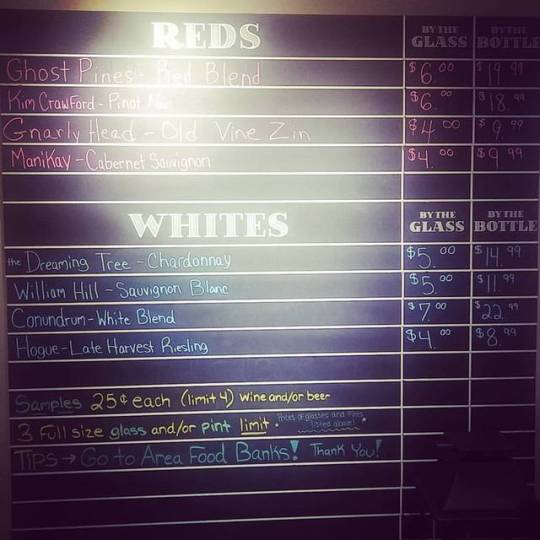 REDS BY THE GLASS BY THE BOTTLE
Ghost Pines - Red Blend $6.00 $19.99
Kim Crawford - Pinot Noir $6.00 $18.99
Gnarly Head - Old Vine Zin $4.00 $9.99
ManiKay - Cabernet Sauvignon $4.00 $9.99
WHITES BY THE GLASS BY THE BOTTLE
the Dreaming Tree - Chardonnay $5.00 $14.99
William Hill - Sauvignon Blanc $5.00 $11.99
Conundrum - White Blend $7.00 $22.99
Hogue - Late Harvest Riesling $4.00 $8.99
Samples 25¢ each (limit 4) wine and/or beer
3 Full size glass and/or pint limit. Prices of glasses and pints listed above!
TIPS → Go to Area Food Banks! Thank You!